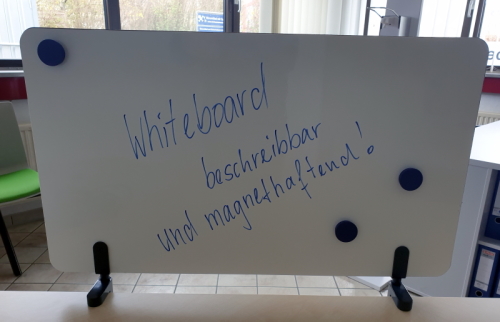 Whiteboard
beschreibbar
und magnethaftend!